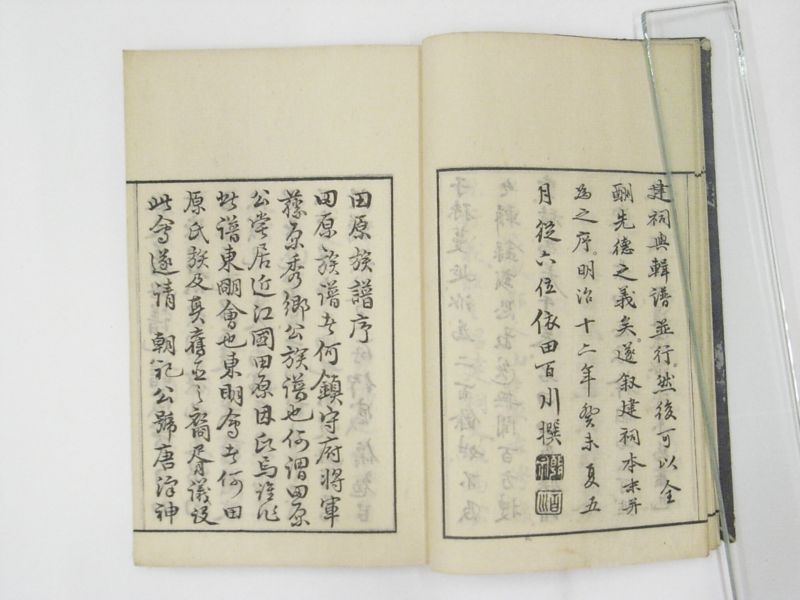 建祠與輯譜並行。然後可以全
酬先德之義矣。遂叙建祠本末并
為之序。明治十六年癸未夏五
月從六位依田百川撰
田原族譜序
田原族譜者何鎮守府將軍
藤原秀郷公族譜也何謂田原
公嘗居近江國田原因氏焉誰作
此譜東明會也東明會者何田
原氏族及其舊臣之裔胥議設
此會遂請 朝祀公號唐澤神